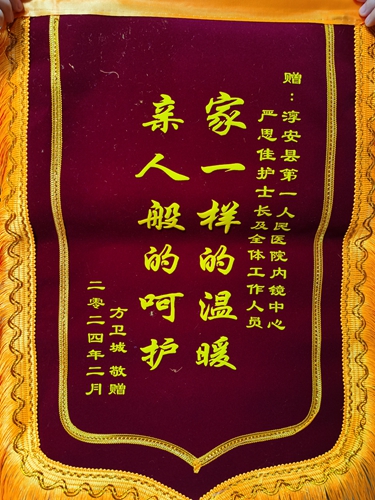 赠：淳安县第一人民医院内镜中心
严思佳护士长及全体工作人员
家一样的温暖
亲人般的呵护
方卫城 敬赠
二零二四年二月